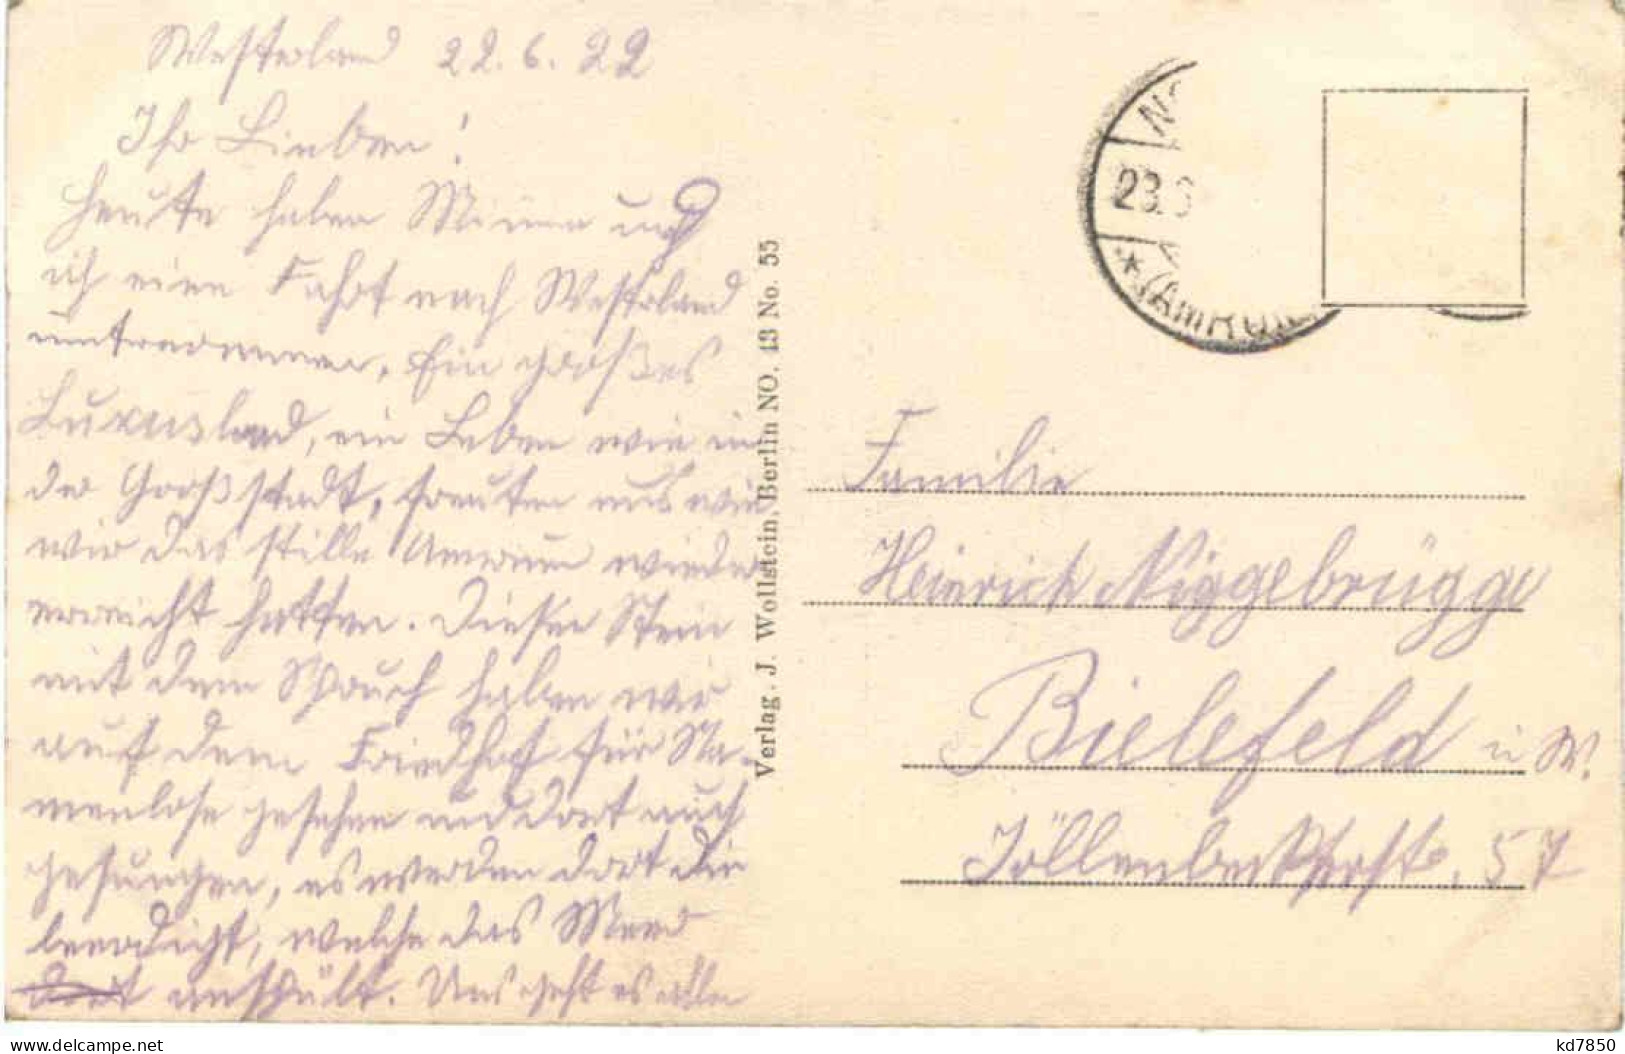 Westerland 22.6.22
Ihr Lieben!
Heute haben Minna und
ich eine Fahrt nach Westerland
unternommen. Ein großes
Luxusbad, ein Leben wie in
der Großstadt, freuten uns wie
wir das stille Amrum wieder
erreicht hatten. Diesen Stein
mit dem Spruch haben wir
auf dem Friedhof für Na-
menlose gesehen und dort auch
gesungen, es werden dort die
beerdigt, welche das Meer
dort anspült. Uns geht es allen
Verlag. J. Wollstein, Berlin NO. 43 No. 55
23.
(AMRUM
Familie
Heinrich Niggebrügge
Bielefeld i W.
Jöllenbeckerstr. 57
delcampe.net
kd7850